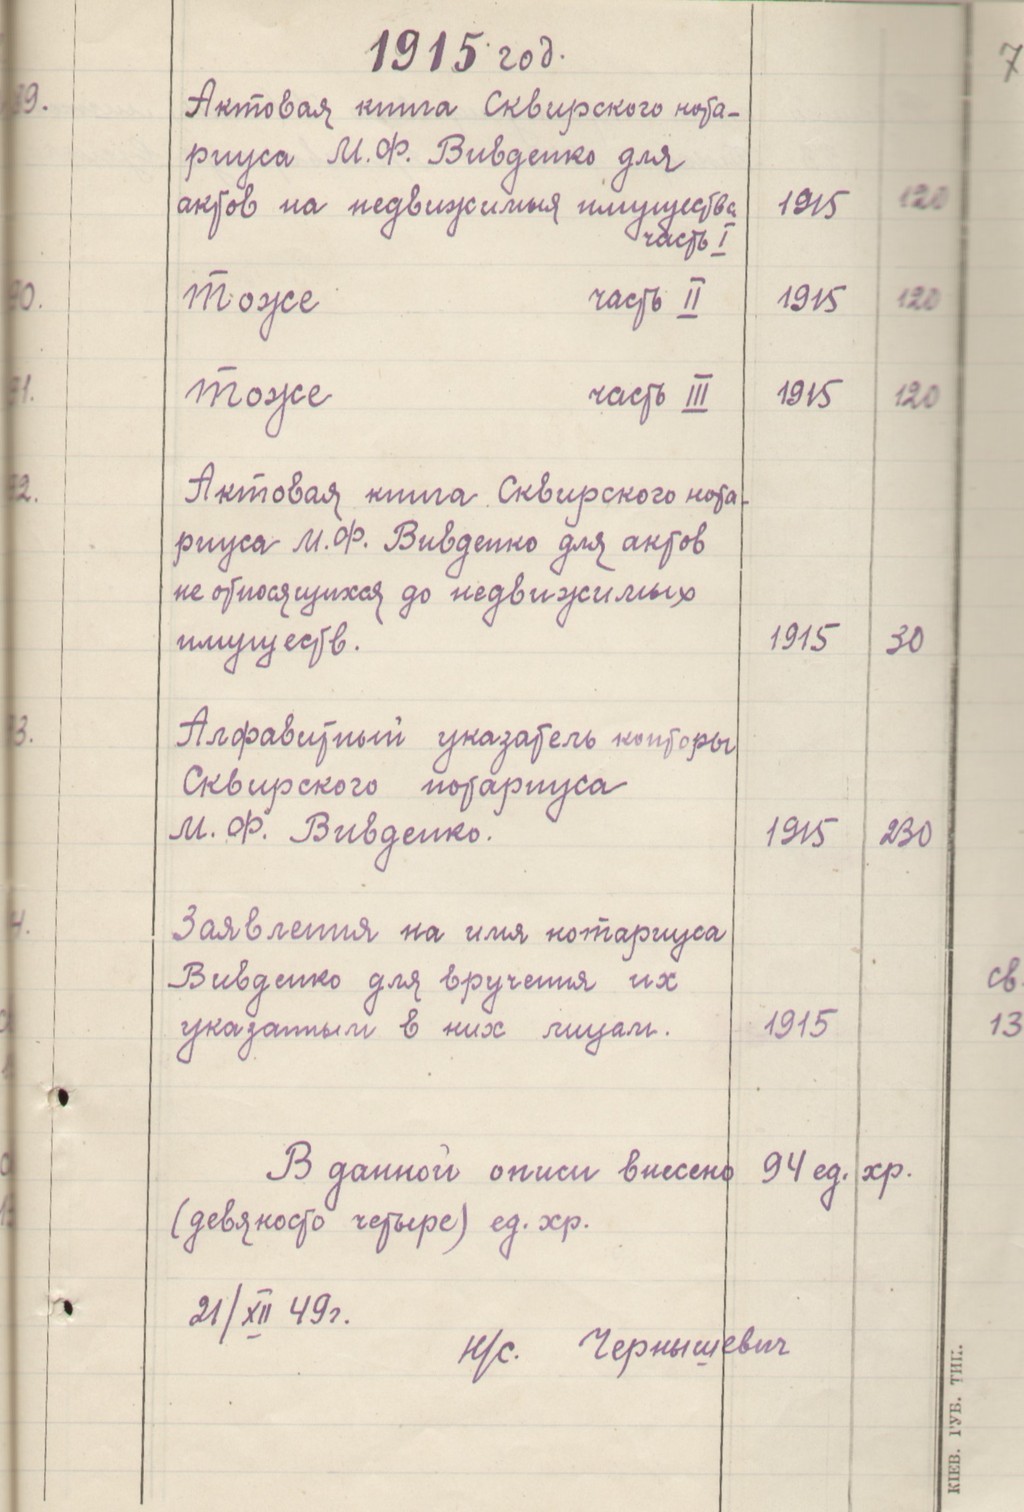 1915 год.
7
89.
Актовая книга Сквирского нота-
риуса М.Ф. Вивденко для
актов на недвижимыя имущества 1915 120
часть I
90. Тоже часть II 1915 120
91. Тоже часть III 1915 120
92. Актовая книга Сквирского нота-
риуса М.Ф. Вивденко для актов
не относящихся до недвижимых
имуществ. 1915 30
93. Алфавитный указатель конторы
Сквирского нотариуса
М. Ф. Вивденко. 1915 230
4. Заявления на имя нотариуса
Вивденко для вручения их св.
указанным в них лицам. 1915 13
В данной описи внесено 94 ед. хр.
(девяносто четыре) ед. хр.
21/XII 49г.
н/с. Чернышевич
КІЕВ. ГУБ. ТИП.